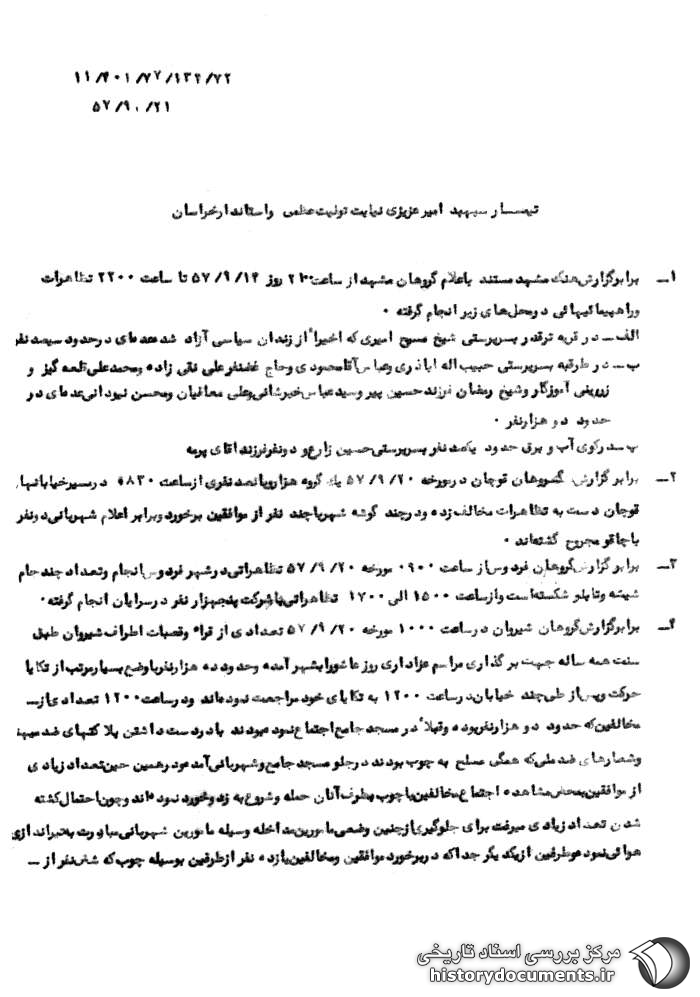 ۱۱/۴۰۱/۷۷/۱۳۴/۷۲
۵۷/۹۰/۲۱
تیمسار سپهبد امیرعزیزی نیابت تولیت عظمی واستاندارخراسان
۱ــ برابرگزارش هنگ مشهد مستند باعلام گروهان مشهد از ساعت ۲۱۰۰ روز ۵۷/۹/۱۴ تا ساعت ۲۲۰۰ تظاهرات
وراهپیمائیهائی درمحلهای زیر انجام گرفته ۰
الف ــ در قریه ترقدر بسرپرستی شیخ مسیح امیری که اخیراً از زندان سیاسی آزاد شده عده ای درحدود سیصد نفر
ب ــ در طرقبه بسرپرستی حبیب اله اباذری وعباس آقامحمودی وحاج غضنفرعلی نقی زاده ومحمدعلی قلعه گیز و
زروینی آموزگار وشیخ رمضان فرزند حسین پیر وسیدعباس خبرشانی وعلی معافیان ومحسن نبودانی عده ای در
حدود دو هزارنفر ۰
پ ــ درکوی آب و برق حدود یکصد نفر بسرپرستی حسین زارع و دونفرفرزند اقای برمه
۲ــ برابر گزارش گروهان قوچان درمورخه ۵۷/۹/۲۰ یک گروه هزاروپانصد نفری ازساعت ۰۸۳۰ درمسیرخیابانهای
قوچان دست به تظاهرات مخالف زده ودرچند گوشه شهرباچند نفر از موافقین برخورد وبرابر اعلام شهربانی دونفر
باچاقو مجروح گشته اند ۰
۳ــ برابر گزارش گروهان فردوس از ساعت ۰۹۰۰ مورخه ۵۷/۹/۲۰ تظاهراتی درشهر فردوس انجام وتعداد چند جام
شیشه وتابلو شکسته است وازساعت ۱۵۰۰ الی ۱۷۰۰ تظاهراتی باشرکت پنجهزار نفر درسرایان انجام گرفته ۰
۴ــ برابرگزارش گروهان شیروان درساعت ۱۰۰۰ مورخه ۵۷/۹/۲۰ تعدادی از قراء وقصبات اطراف شیروان طبق
سنت همه ساله جهت برگذاری مراسم عزاداری روز عاشورا بشهر آمده وحدود ده هزارنفر باوضع بسیار مرتب از تکایا
حرکت وپس از طی چند خیابان درساعت ۱۲۰۰ به تکایای خود مراجعت نموده اند ودرساعت ۱۲۰۰ تعدادی از ــ
مخالفین که حدود دو هزارنفربوده وقبلاً در مسجد جامع اجتماع نموده بودند بادردست داشتن پلاکتهای ضد میهنی
وشعارهای ضد ملی که همگی مسلح به چوب بودند درجلو مسجد جامع وشهربانی آمده ودرهمین حین تعداد زیادی
از موافقین بمحض مشاهده اجتماع مخالفین باچوب بطرف آنان حمله وشروع به زدوخورد نموده اند وچون احتمال کشته
شدن تعداد زیادی میرفت برای جلوگیری از چنین وضعی مامورین مداخله وسیله مامورین شهربانی مبادرت به تیراندازی
هوائی نموده وطرفین از یکدیگر جدا که دربرخورد موافقین ومخالفین یازده نفر از طرفین بوسیله چوب که شش نفر از ــ
مرکز بررسی اسناد تاریخی
historydocuments.ir